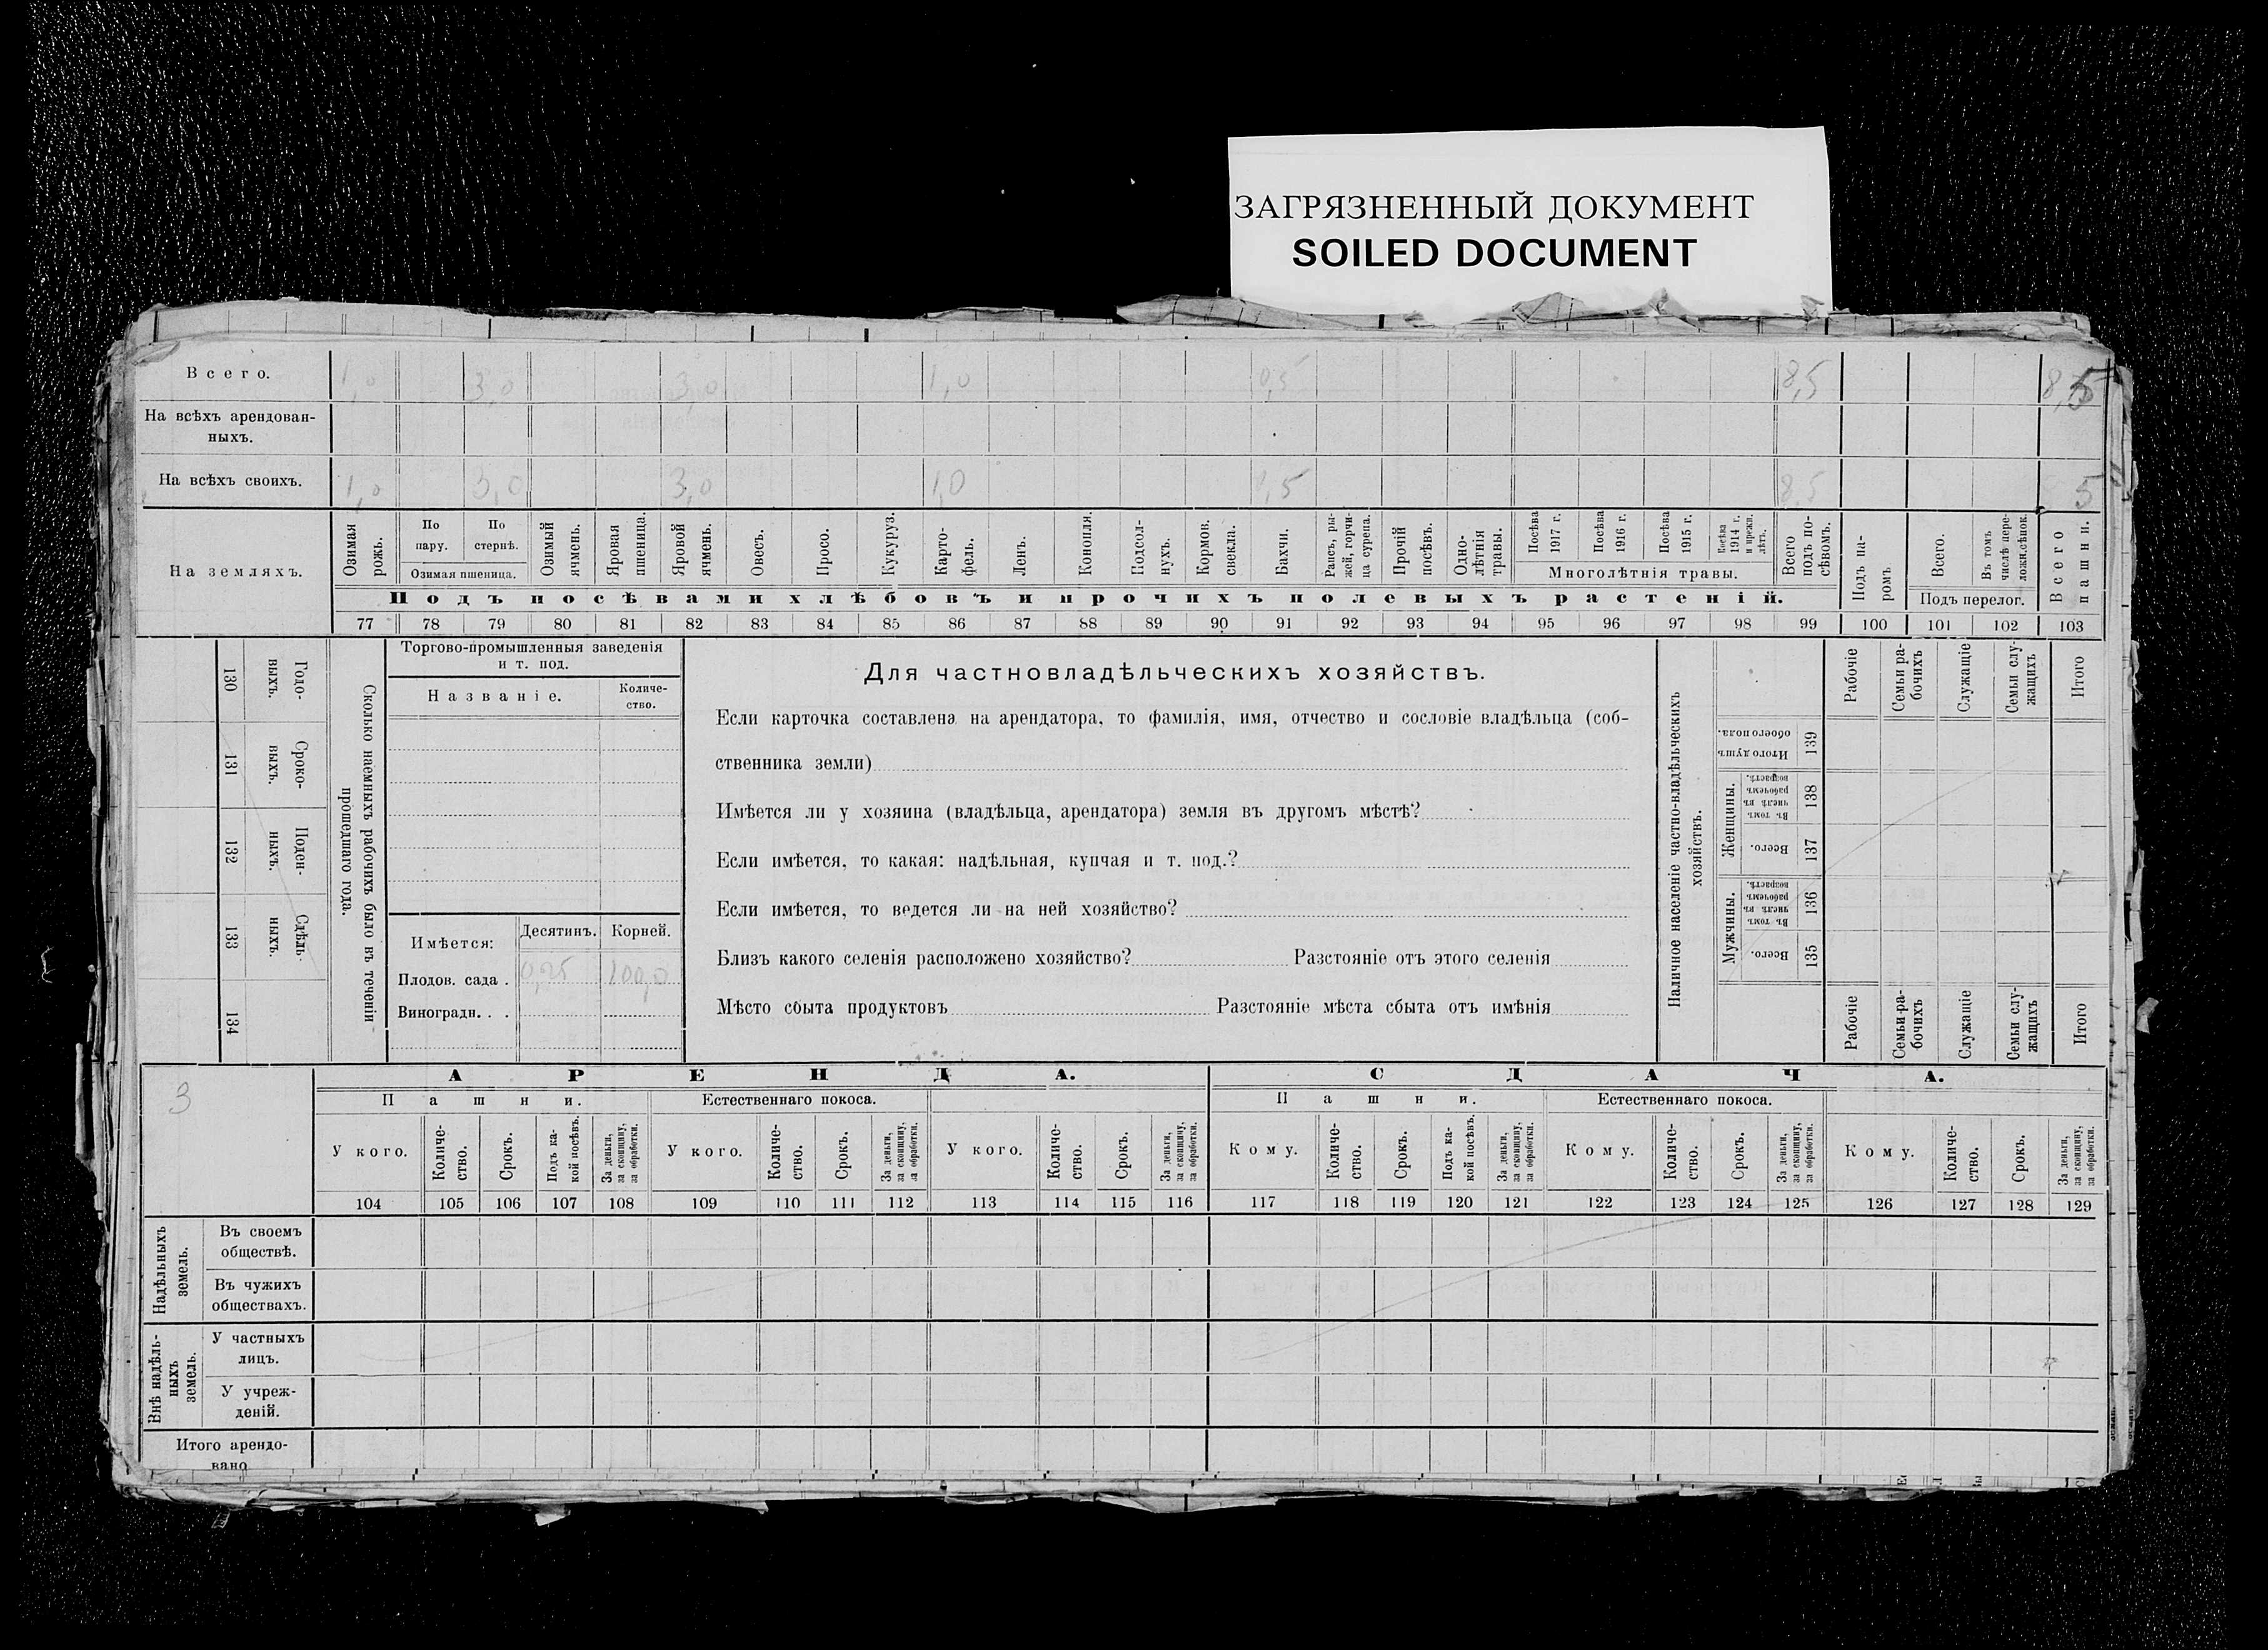 ЗАГРЯЗНЕННЫЙ ДОКУМЕНТ
SOILED DOCUMENT
Всего. 1,0 3,0 3,0 1,0 0,5 8,5
На всѣхъ арендован-
ныхъ.
На всѣхъ своихъ. 1,0 3,0 3,0 1,0 0,5 8,5
На земляхъ.
Озимая рожь.
По пару.
По стернѣ.
Озимая пшеница.
Озимый ячмень.
Яровая пшеница.
Яровой ячмень.
Овесъ.
Просо.
Кукуруз.
Карто-
фель.
Ленъ.
Конопля.
Подсол-
нухъ.
Кормов. свекла.
Бахчи.
Рапсъ, ры-
жей, горчи-
ца сурепа.
Прочій посѣвъ.
Одно-
лѣтнія травы.
Посѣва 1917 г.
Посѣва 1916 г.
Посѣва 1915 г.
Посѣва 1914 г. и прежн. лѣтъ.
Многолѣтнія травы.
Всего подъ по-
сѣвомъ.
Подъ па-
ромъ.
Всего.
Въ томъ числѣ пере-
ложн. сѣнок.
Подъ перелог.
Всего пашни.
Подъ посѣвами хлѣбовъ и прочихъ полевыхъ растеній.
77 78 79 80 81 82 83 84 85 86 87 88 89 90 91 92 93 94 95 96 97 98 99 100 101 102 103
130 Годо-
выхъ.
131 Сроко-
выхъ.
132 Поден-
ныхъ.
133 Сдѣль-
ныхъ.
134
Сколько наемныхъ рабочихъ было въ теченіи
прошедшаго года.
Торгово-промышленныя заведенія
и т. под.
Названіе.
Количе-
ство.
Имѣется:
Десятинъ.
Корней.
Плодов. сада . 0,25 100,0
Виноградн. . .
Для частновладѣльческихъ хозяйствъ.
Если карточка составлена на арендатора, то фамилія, имя, отчество и сословіе владѣльца (соб-
ственника земли)
Имѣется ли у хозяина (владѣльца, арендатора) земля въ другомъ мѣстѣ?
Если имѣется, то какая: надѣльная, купчая и т. под.?
Если имѣется, то ведется ли на ней хозяйство?
Близъ какого селенія расположено хозяйство? Разстояніе отъ этого селенія
Мѣсто сбыта продуктовъ Разстояніе мѣста сбыта отъ имѣнія
Наличное населеніе частно-владѣльческихъ
хозяйствъ.
Рабочіе
Семьи ра-
бочихъ
Служащіе
Семьи слу-
жащихъ
Итого
Итого душъ обоего пола. 139
Женщины.
Въ томъ числѣ въ рабочемъ возрастѣ. 138
Всего. 137
Мужчины.
Въ томъ числѣ въ рабочемъ возрастѣ. 136
Всего. 135
Рабочіе
Семьи ра-
бочихъ
Служащіе
Семьи слу-
жащихъ
Итого
3
АРЕНДА.
СДАЧА.
Пашни.
Естественнаго покоса.
Пашни.
Естественнаго покоса.
У кого.
Количе-
ство.
Срокъ.
Подъ ка-
кой посѣвъ.
За деньги,
за скопщину,
за обработки.
У кого.
Количе-
ство.
Срокъ.
За деньги,
за скопщину,
за обработки.
У кого.
Количе-
ство.
Срокъ.
За деньги,
за скопщину,
за обработки.
Кому.
Количе-
ство.
Срокъ.
Подъ ка-
кой посѣвъ.
За деньги,
за скопщину,
за обработки.
Кому.
Количе-
ство.
Срокъ.
За деньги,
за скопщину,
за обработки.
Кому.
Количе-
ство.
Срокъ.
За деньги,
за скопщину,
за обработки.
104 105 106 107 108 109 110 111 112 113 114 115 116 117 118 119 120 121 122 123 124 125 126 127 128 129
Надѣльныхъ
земель.
Въ своемъ
обществѣ.
Въ чужихъ
обществахъ.
Внѣ надѣль-
ныхъ
земель.
У частныхъ
лицъ.
У учреж-
деній.
Итого арендо-
вано